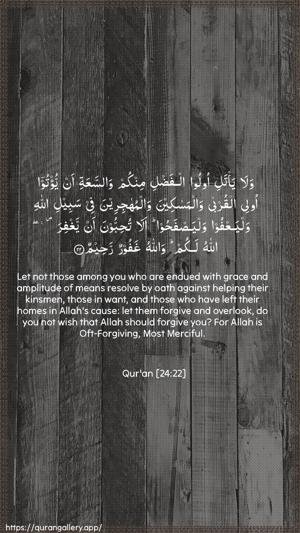 وَلَا يَأْتَلِ اُولُوا الْفَضْلِ مِنْكُمْ وَالسَّعَةِ اَنْ يُّؤْتُوْٓا
اُولِى الْقُرْبٰى وَالْمَسٰكِيْنَ وَالْمُهٰجِرِيْنَ فِيْ سَبِيْلِ اللّٰهِ
وَلْيَعْفُوْا وَلْيَصْفَحُوْا ۗ اَلَا تُحِبُّوْنَ اَنْ يَّغْفِرَ
اللّٰهُ لَكُمْ ۗ وَاللّٰهُ غَفُوْرٌ رَّحِيْمٌ ٢٢
Let not those among you who are endued with grace and
amplitude of means resolve by oath against helping their
kinsmen, those in want, and those who have left their
homes in Allah's cause: let them forgive and overlook, do
you not wish that Allah should forgive you? For Allah is
Oft-Forgiving, Most Merciful.
Qur'an [24:22]
https://qurangallery.app/